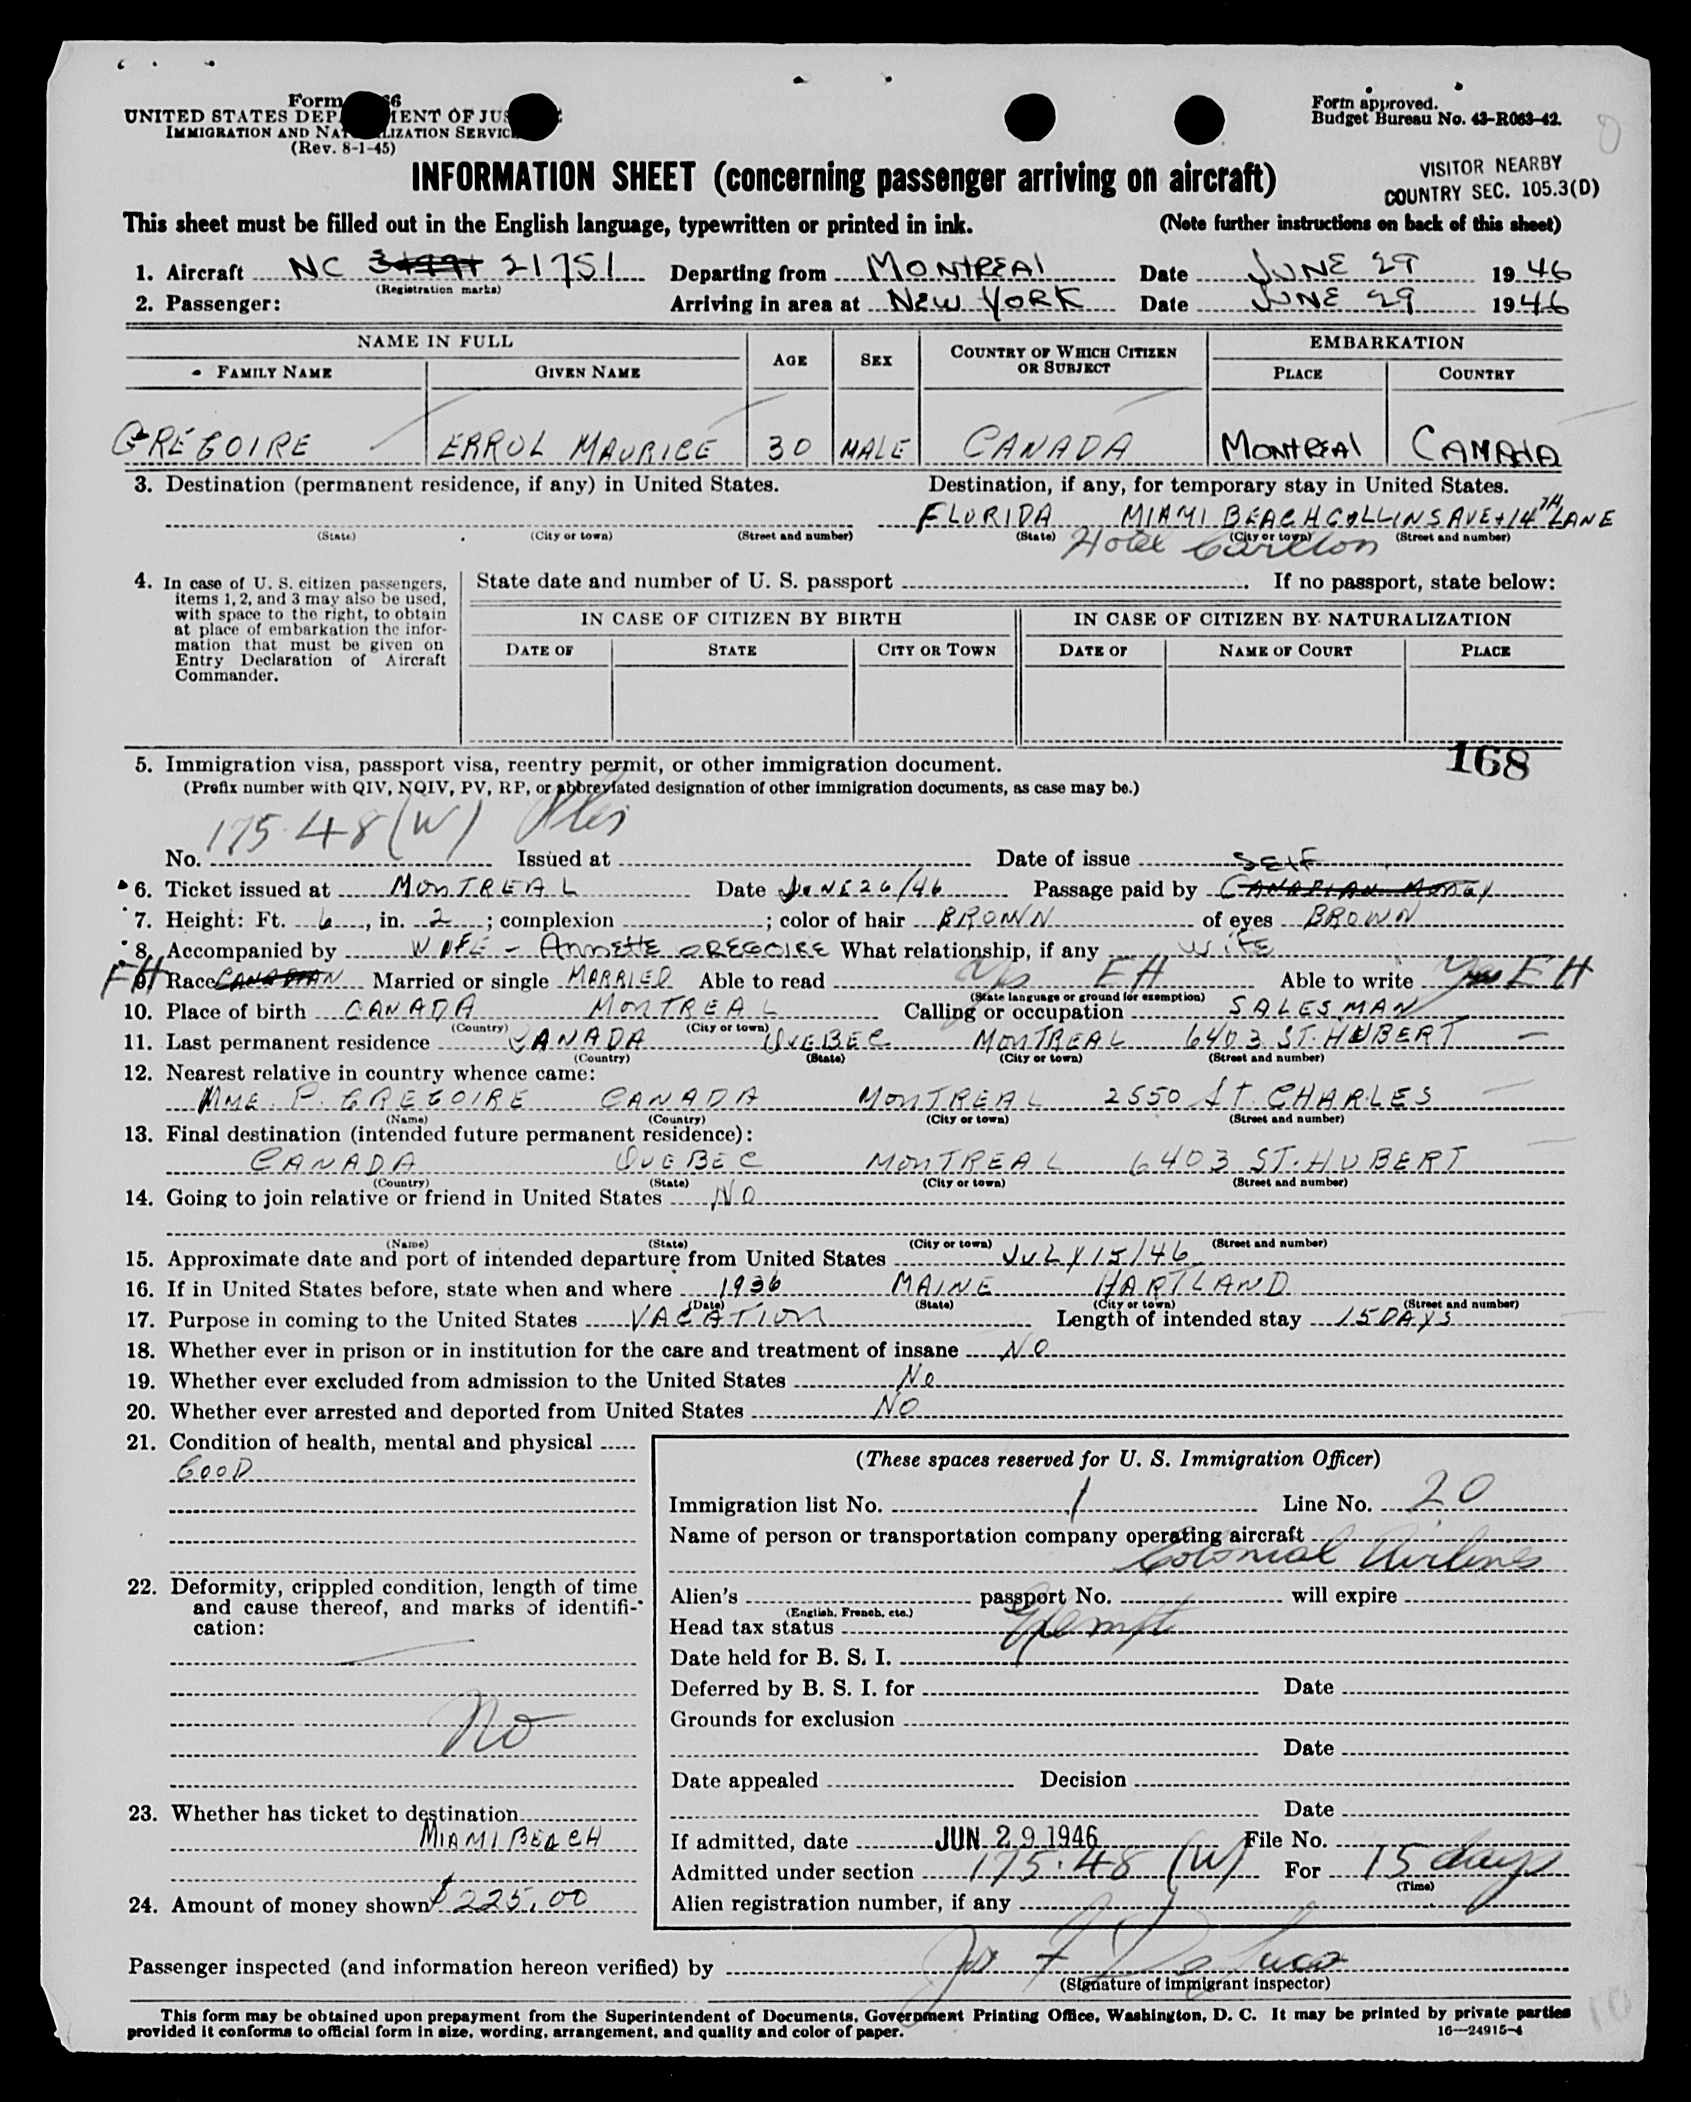 Form 66
UNITED STATES DEP MENT OF JUS
IMMIGRATION AND NAT LIZATION SERVIC
(Rev. 8-1-45)
Form approved.
Budget Bureau No. 43-R063-42.
INFORMATION SHEET (concerning passenger arriving on aircraft)
VISITOR NEARBY
COUNTRY SEC. 105.3(D)
This sheet must be filled out in the English language, typewritten or printed in ink. (Note further instructions on back of this sheet)
1. Aircraft NC 21751 Departing from MONTREAL Date JUNE 29 1946
(Registration marks)
2. Passenger: Arriving in area at NEW YORK Date JUNE 29 1946
NAME IN FULL AGE SEX COUNTRY OF WHICH CITIZEN OR SUBJECT EMBARKATION
FAMILY NAME GIVEN NAME PLACE COUNTRY
GRÉGOIRE ERROL MAURICE 30 MALE CANADA MONTREAL CANADA
3. Destination (permanent residence, if any) in United States. Destination, if any, for temporary stay in United States.
FLORIDA MIAMI BEACH COLLINS AVE + 14TH LANE
(State) (City or town) (Street and number) (State) (City or town) (Street and number)
Hotel Carlton
4. In case of U. S. citizen passengers, items 1, 2, and 3 may also be used, with space to the right, to obtain at place of embarkation the information that must be given on Entry Declaration of Aircraft Commander.
State date and number of U. S. passport . If no passport, state below:
IN CASE OF CITIZEN BY BIRTH IN CASE OF CITIZEN BY NATURALIZATION
DATE OF STATE CITY OR TOWN DATE OF NAME OF COURT PLACE
168
5. Immigration visa, passport visa, reentry permit, or other immigration document.
(Prefix number with QIV, NQIV, PV, RP, or abbreviated designation of other immigration documents, as case may be.)
No. 175.48(W) Issued at Date of issue
SELF
6. Ticket issued at MONTREAL Date JUNE 26/46 Passage paid by CANADIAN MONEY
7. Height: Ft. 6, in. 2; complexion ; color of hair BROWN of eyes BROWN
8. Accompanied by WIFE - ANNETTE GREGOIRE What relationship, if any WIFE
FH 9. Race CANADIAN Married or single MARRIED Able to read Yes EH Able to write Yes EH
(State language or ground for exemption)
10. Place of birth CANADA MONTREAL Calling or occupation SALESMAN
(Country) (City or town)
11. Last permanent residence CANADA QUEBEC MONTREAL 6403 ST. HUBERT
(Country) (State) (City or town) (Street and number)
12. Nearest relative in country whence came:
MME. P. GREGOIRE CANADA MONTREAL 2550 ST. CHARLES
(Name) (Country) (City or town) (Street and number)
13. Final destination (intended future permanent residence):
CANADA QUEBEC MONTREAL 6403 ST. HUBERT
(Country) (State) (City or town) (Street and number)
14. Going to join relative or friend in United States NO
(Name) (State) (City or town) (Street and number)
15. Approximate date and port of intended departure from United States JULY 15/46
16. If in United States before, state when and where 1936 MAINE HARTLAND
(Date) (State) (City or town) (Street and number)
17. Purpose in coming to the United States VACATION Length of intended stay 15 DAYS
18. Whether ever in prison or in institution for the care and treatment of insane NO
19. Whether ever excluded from admission to the United States NO
20. Whether ever arrested and deported from United States NO
21. Condition of health, mental and physical
GOOD
22. Deformity, crippled condition, length of time
and cause thereof, and marks of identifi-
cation:
No
23. Whether has ticket to destination
MIAMI BEACH
24. Amount of money shown $225.00
(These spaces reserved for U. S. Immigration Officer)
Immigration list No. 1 Line No. 20
Name of person or transportation company operating aircraft
Colonial Airlines
Alien's passport No. will expire
(English, French, etc.)
Head tax status Exempt
Date held for B. S. I.
Deferred by B. S. I. for Date
Grounds for exclusion
Date
Date appealed Decision
Date
If admitted, date JUN 29 1946 File No.
Admitted under section 175.48 (W) For 15 days
(Time)
Alien registration number, if any
Passenger inspected (and information hereon verified) by
(Signature of immigrant inspector)
This form may be obtained upon prepayment from the Superintendent of Documents, Government Printing Office, Washington, D. C. It may be printed by private parties
provided it conforms to official form in size, wording, arrangement, and quality and color of paper.
16—24915-4